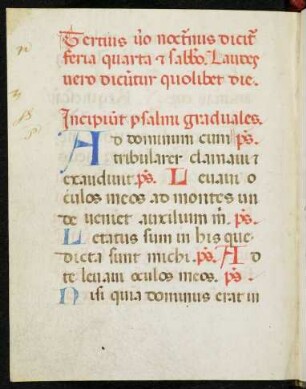 Tertius ũo noctnus dicit᷑
feria quarta ⁊ sabbo. Laudes
vero dicunt᷑ quolibet die.
Incipiũt psalmi graduales.
AD dominum cum p̃s.
tribularer clamaui ⁊
exaudiuit. p̃s. Leuaui o
culos meos ad montes un
de veniet auxilium m̃. p̃s.
Letatus sum in his que
dicta sunt michi. p̃s. Ad
te leuaui oculos meos. p̃s
Nisi quia dominus erat in